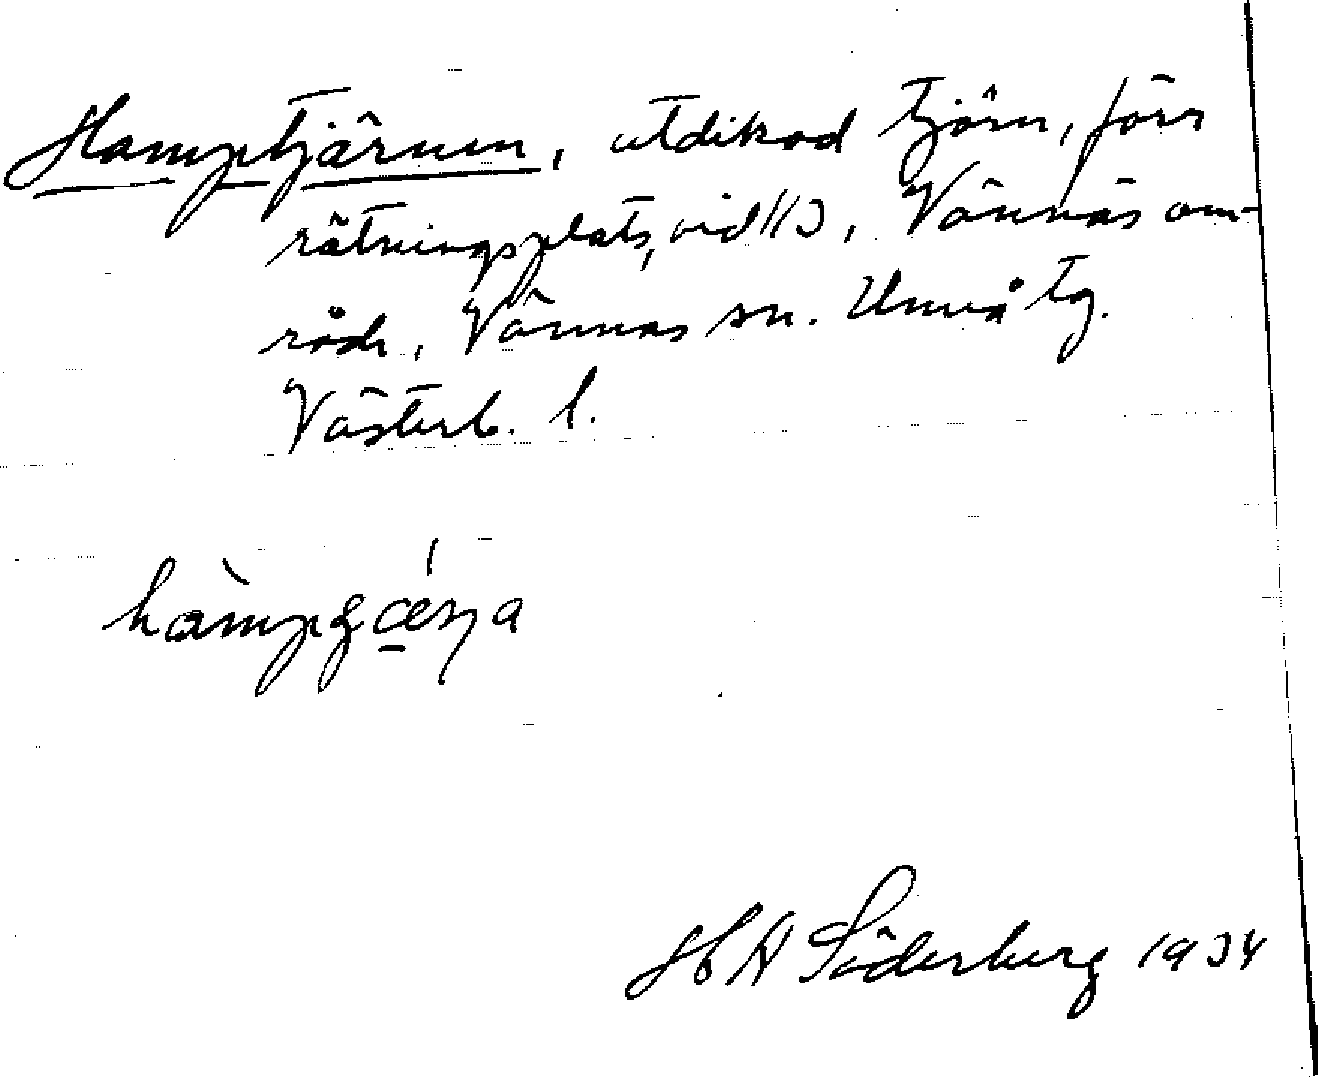 Hamptjärnen, utdikad tjärn, förr
rötningsplats, vid 1/3, Vännäs om-
råde, Vännäs sn. Umeå tg.
Västerb. l.
H A Söderberg 1934